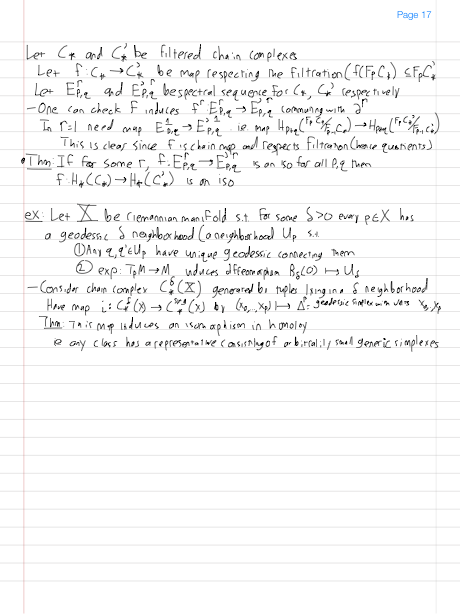 Page 17
Let C_* and C'_* be filtered chain complexes
Let f: C_* → C'_* be map respecting the filtration (f(F_pC_*) ⊆ F_pC'_*)
Let E^r_{p,q} and E'^r_{p,q} be spectral sequence for C_*, C'_* respectively
- One can check F induces f^r: E^r_{p,q} → E'^r_{p,q} commuting with ∂^r
In r=1 need map E^1_{p,q} → E'^1_{p,q} ie map H_{p+q}(F_pC_*/F_{p-1}C_*) → H_{p+q}(F_pC'_*/F_{p-1}C'_*)
This is clear since f is chain map and respects filtration (hence quotients)
• Thm: If for some r, f: E^r_{p,q} → E'^r_{p,q} is an iso for all p,q then
f: H_*(C_*) → H_*(C'_*) is an iso
ex: Let X be riemannian manifold s.t. for some δ>0 every p∈X has
a geodessic δ neighborhood (a neighborhood U_p s.t.
① Any q,q'∈U_p have unique geodessic connecting them
② exp: T_pM → M induces diffeomorphism B_δ(0) ↦ U_δ
- Consider chain complex C^δ_*(X) generated by tuples lying in a δ neighborhood
Have map i: C^δ_*(X) → C^{sing}_*(X) by (x_0,..,x_p) ↦ Δ^p: geodessic simplex with verts x_0, x_p
Thm: This map induces an isomorphism in homology
ie any class has a representative consisting of arbitrarily small generic simplexes